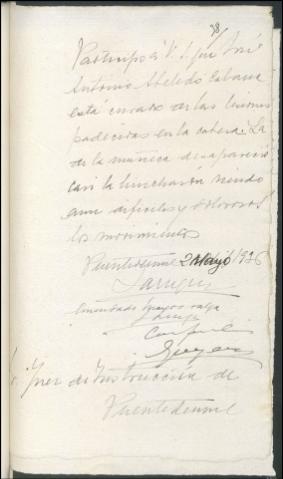 38
Participo á V. S. que José
Antonio Abeledo Cabana
está curado de las lesiones
padecidas en la cabeza. La
de la muñeca desapareció
casi la hinchazón siendo
aun dificiles y dolorosos
los movimientos
Puentedeume 2 Mayo 1926
Enmendado Mayo = valga
Juez de Instrucción de
Puentedeume